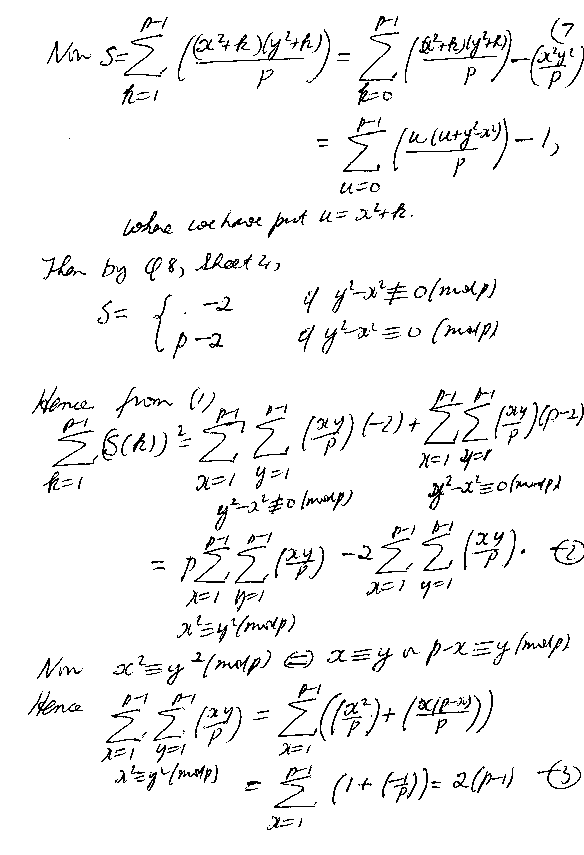 (7
Now S = \sum_{k=1}^{p-1} \left(\frac{(x^2+k)(y^2+k)}{p}\right) = \sum_{k=0}^{p-1} \left(\frac{(x^2+k)(y^2+k)}{p}\right) - \left(\frac{x^2y^2}{p}\right)
= \sum_{u=0}^{p-1} \left(\frac{u(u+y^2-x^2)}{p}\right) - 1,
where we have put u = x^2+k.
Then by Q8, Sheet 4,
S = { -2 if y^2-x^2 ≢ 0 (mod p)
p-2 if y^2-x^2 ≡ 0 (mod p)
Hence from (1)
\sum_{k=1}^{p-1} (S(k))^2 = \sum_{x=1}^{p-1} \sum_{y=1}^{p-1} \left(\frac{xy}{p}\right)(-2) + \sum_{x=1}^{p-1} \sum_{y=1}^{p-1} \left(\frac{xy}{p}\right)(p-2)
y^2-x^2 ≢ 0 (mod p) y^2-x^2 ≡ 0 (mod p)
= p \sum_{x=1}^{p-1} \sum_{y=1}^{p-1} \left(\frac{xy}{p}\right) - 2 \sum_{x=1}^{p-1} \sum_{y=1}^{p-1} \left(\frac{xy}{p}\right). - (2)
x^2 ≡ y^2 (mod p)
Now x^2 ≡ y^2 (mod p) ⇔ x ≡ y or p-x ≡ y (mod p)
Hence \sum_{x=1}^{p-1} \sum_{y=1}^{p-1} \left(\frac{xy}{p}\right) = \sum_{x=1}^{p-1} \left(\left(\frac{x^2}{p}\right) + \left(\frac{x(p-x)}{p}\right)\right)
x^2 ≡ y^2 (mod p) = \sum_{x=1}^{p-1} \left(1 + \left(\frac{-1}{p}\right)\right) = 2(p-1) - (3)